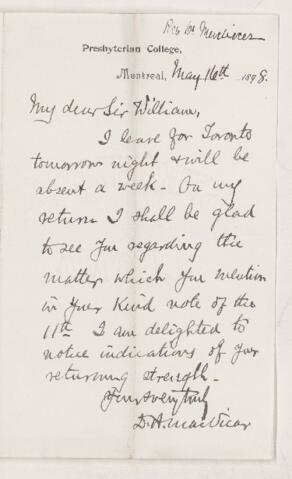 Presbyterian College,
Montreal, May 16th 1898.
My dear Sir William,
I leave for Toronto
tomorrow night & will be
absent a week. On my
return I shall be glad
to see you regarding the
matter which you mention
in your kind note of the
11th. I am delighted to
notice indications of your
returning strength.
Yours very truly
D. H. MacVicar